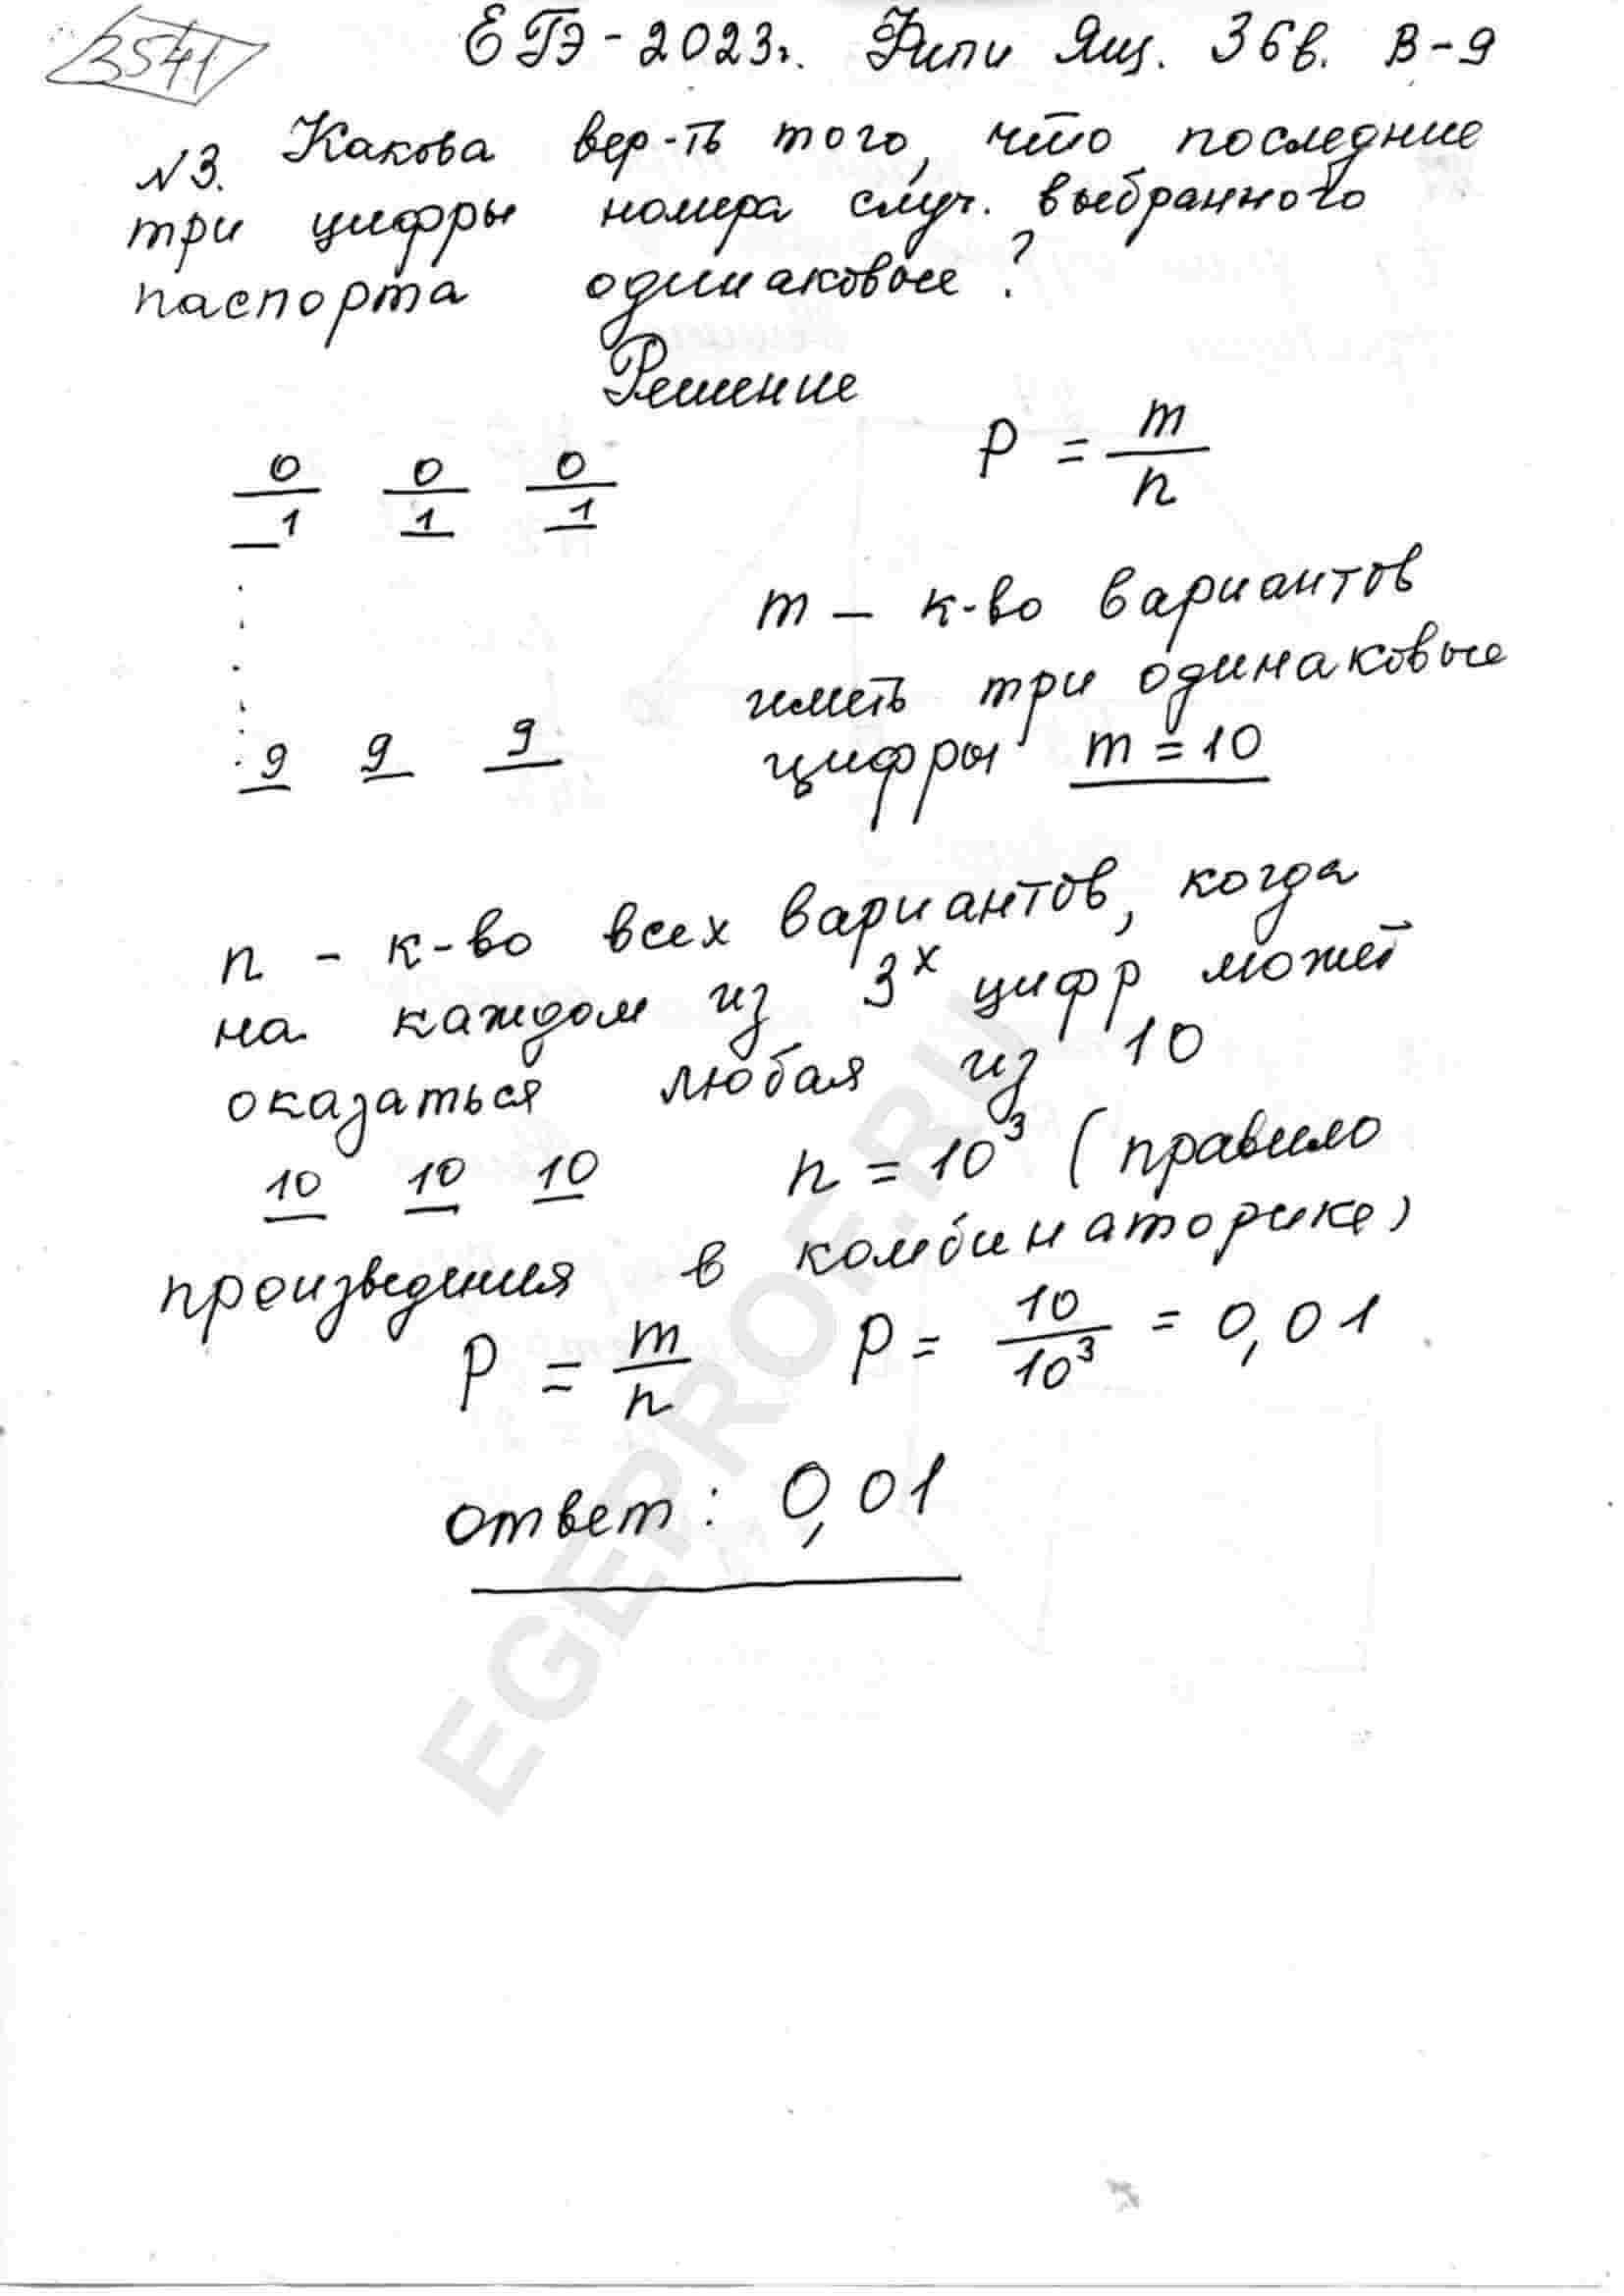 3541
ЕГЭ-2023г. Фипи Ящ. 36в. В-9
№3. Какова вер-ть того, что последние
три цифры номера случ. выбранного
паспорта одинаковые?
Решение
0 0 0
1 1 1
9 9 9
P = m/n
m – к-во вариантов
иметь три одинаковые
цифры m = 10
n – к-во всех вариантов, когда
на каждом из 3х цифр может
оказаться любая из 10
10 10 10 n = 10³ (правило
произведения в комбинаторике)
P = m/n P = 10/10³ = 0,01
ответ: 0,01
EGEPROF.RU